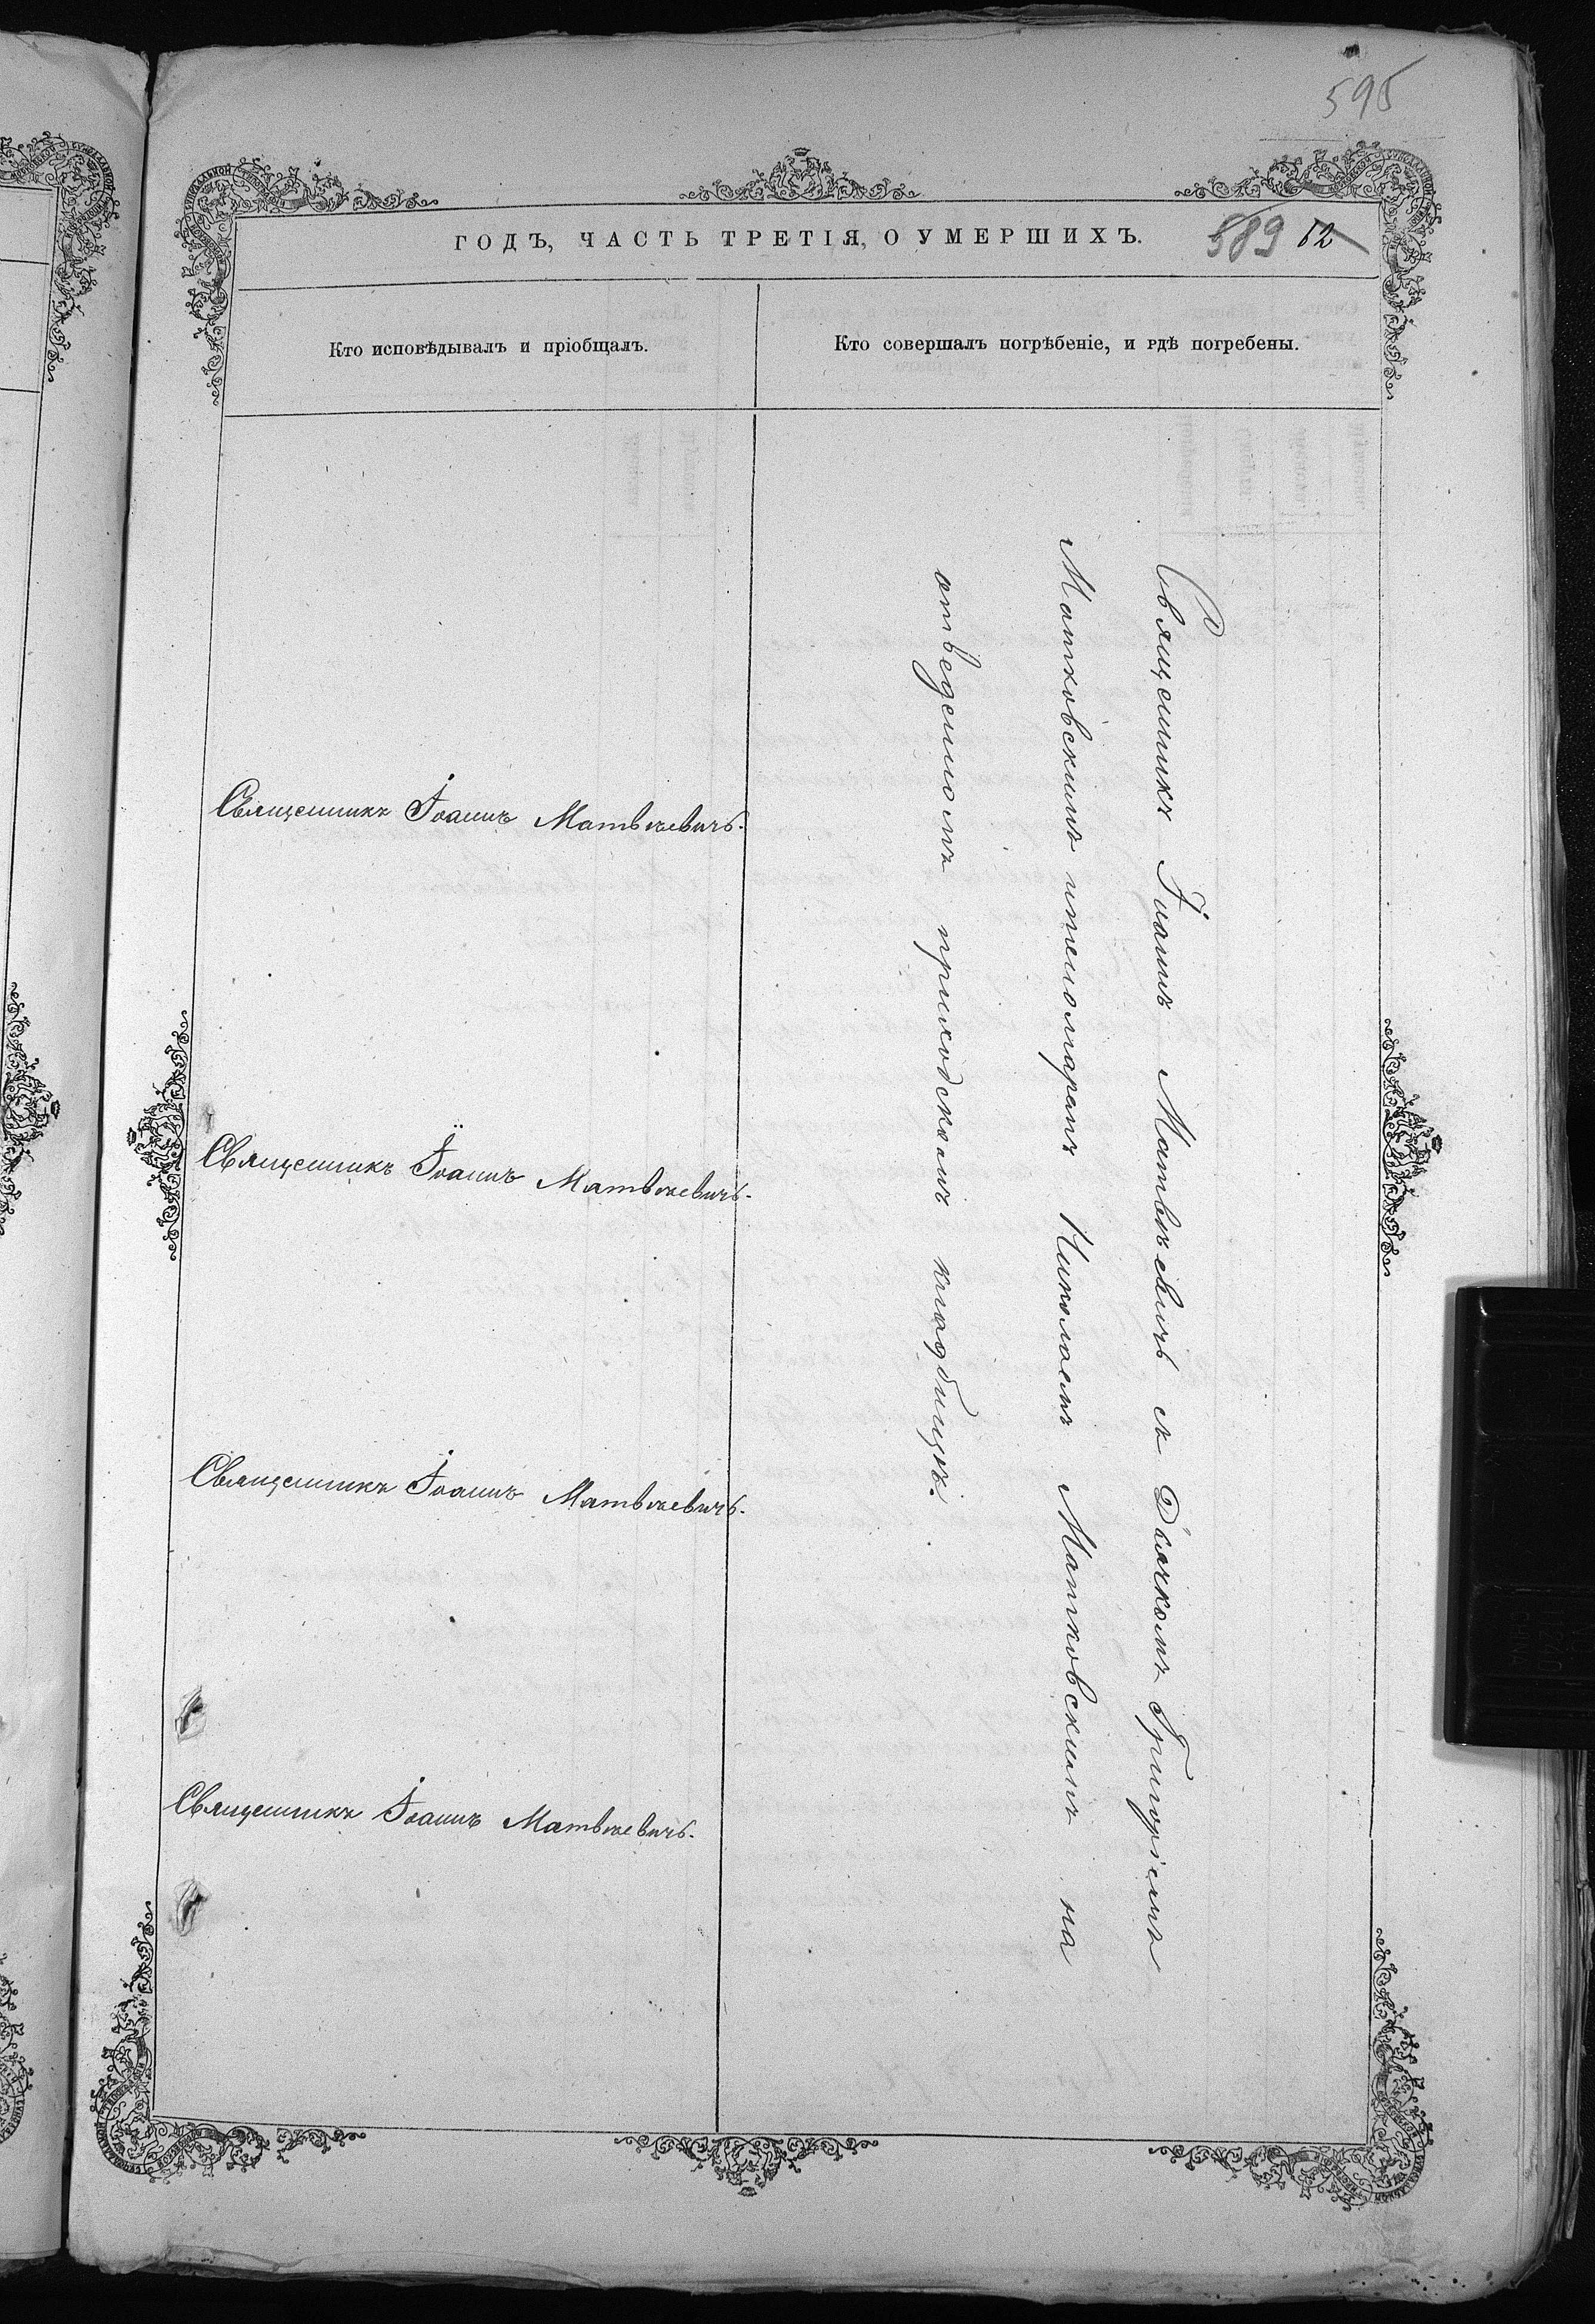 595
ГОДЪ, ЧАСТЬ ТРЕТІЯ, О УМЕРШИХЪ.
589 62
Кто исповѣдывалъ и пріобщалъ.
Кто совершалъ погрѣбеніе, и гдѣ погребены.
Священникъ Іоаннъ Матвѣевичъ.
Священникъ Іоаннъ Матвѣевичъ.
Священникъ Іоаннъ Матвѣевичъ.
Священникъ Іоаннъ Матвѣевичъ.
Священникъ Іоаннъ Матвѣевичъ съ Дьячкомъ Григоріемъ
Матковскимъ и пономаремъ Николаемъ Матковскимъ на
отведенномъ приходскомъ кладбищѣ.